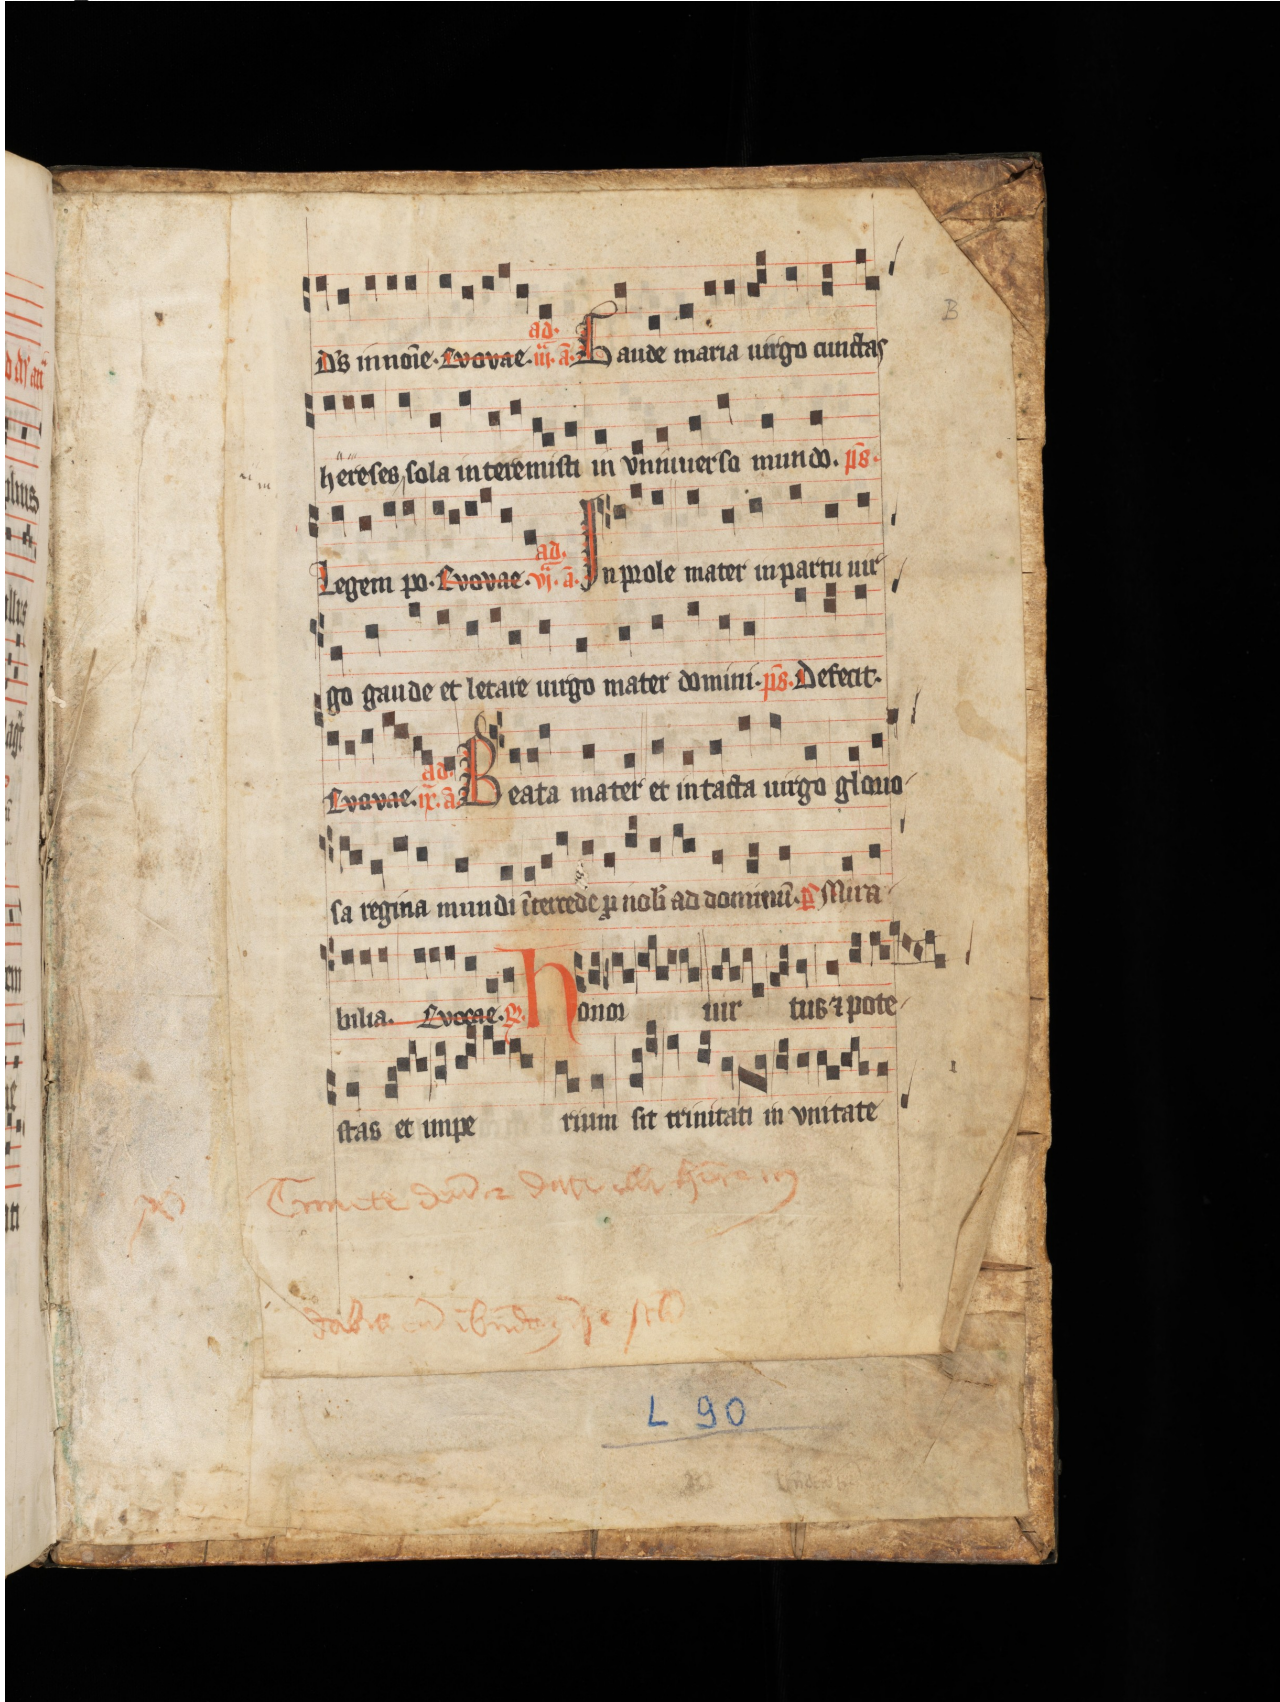 B
ad.
Ds in noīe. Evovae. iij. ā. Gaude maria uirgo cunctas
hereses sola interemisti in vniuerso mundo. ps.
ad.
Legem po. Evovae. vj. ā. In prole mater in partu uir
go gaude et letare uirgo mater domini. ps. Defecit.
ad.
Evovae. ix. ā. Beata mater et intacta uirgo glorio
sa regina mundi ītercede ꝓ nob ad dominū. ps Mira
bilia. Evovae. ℟. honor uir tus ⁊ pote
stas et impe rium sit trinitati in vnitate
L 90